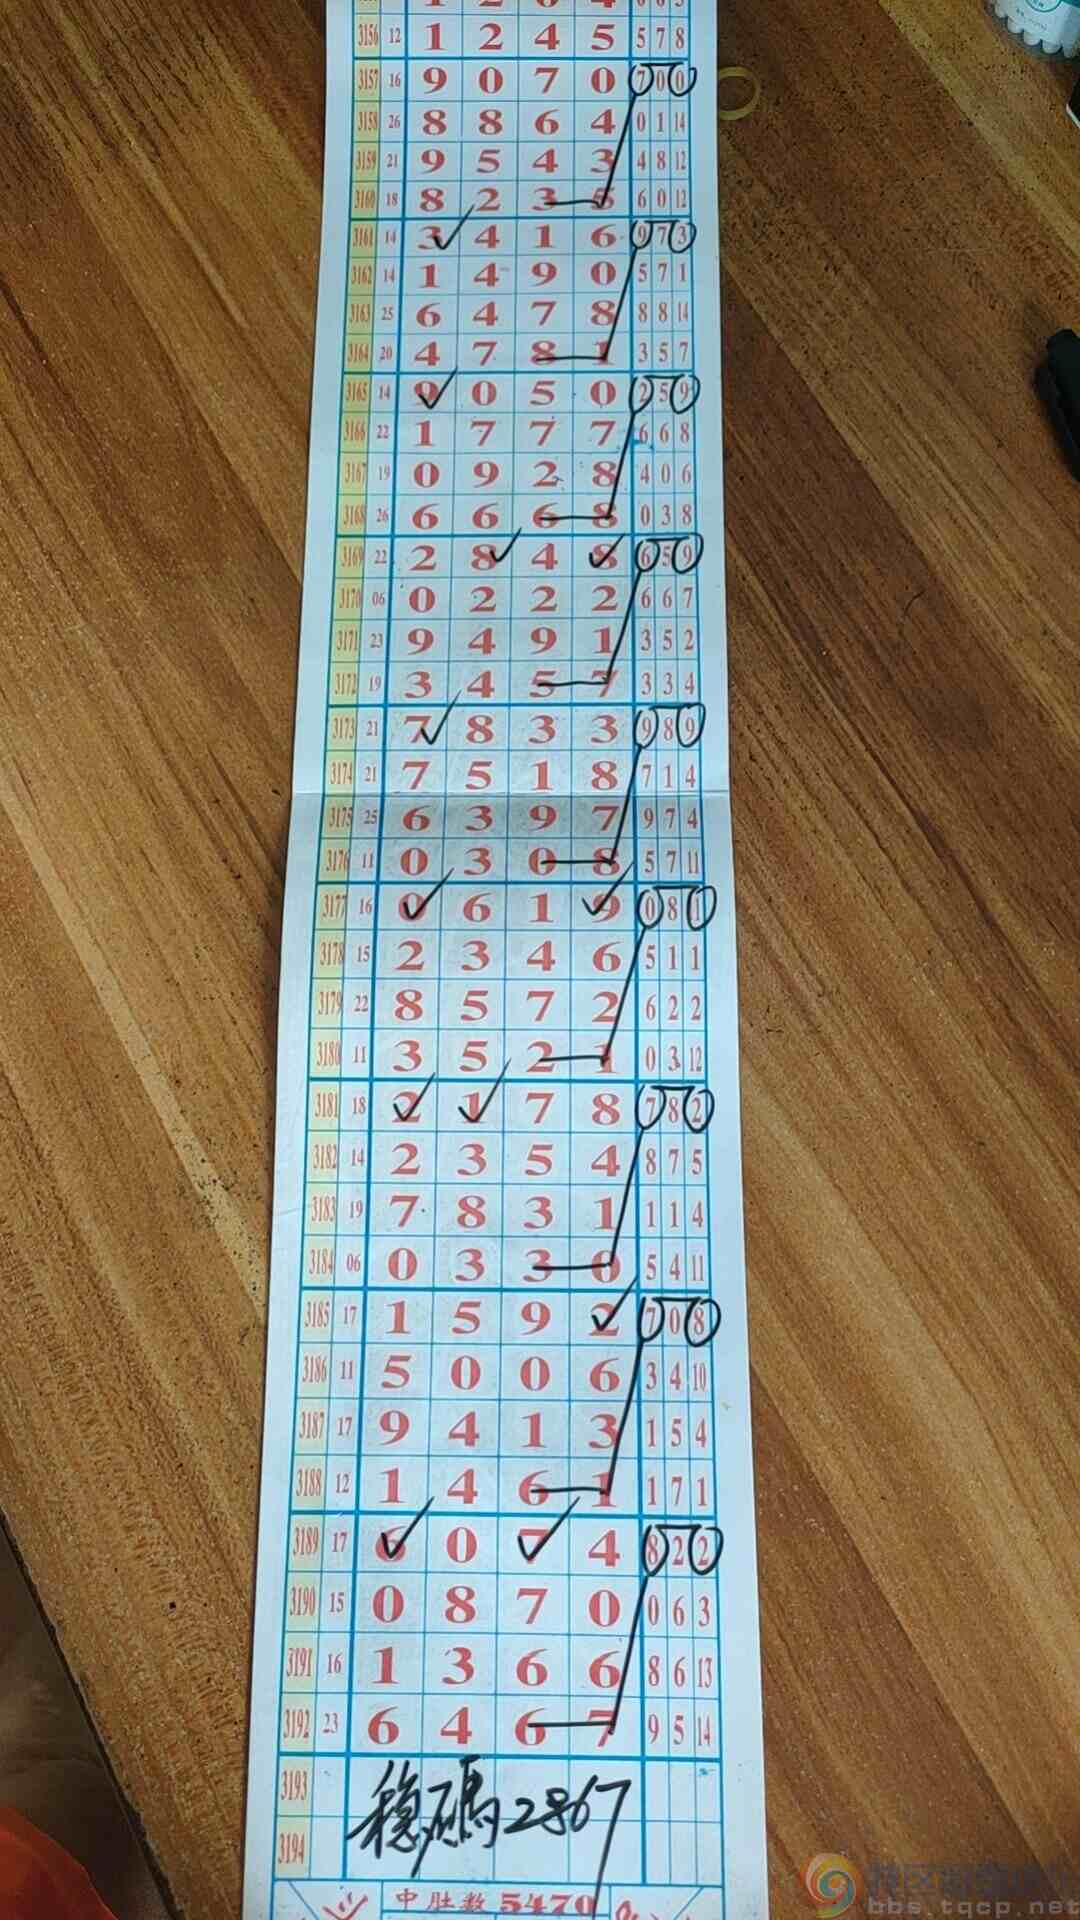 3156 12 1 2 4 5 5 7 8
3157 16 9 0 7 0 7 0 0
3158 26 8 8 6 4 0 1 14
3159 21 9 5 4 3 4 8 12
3160 18 8 2 3 5 6 0 12
3161 14 3 4 1 6 9 7 3
3162 14 1 4 9 0 5 7 1
3163 25 6 4 7 8 8 8 14
3164 20 4 7 8 1 3 5 7
3165 14 9 0 5 0 2 5 9
3166 22 1 7 7 7 6 6 8
3167 19 0 9 2 8 4 0 6
3168 26 6 6 6 8 0 3 8
3169 22 2 8 4 8 6 5 9
3170 06 0 2 2 2 6 6 7
3171 23 9 4 9 1 3 5 2
3172 19 3 4 5 7 3 3 4
3173 21 7 8 3 3 9 8 9
3174 21 7 5 1 8 7 1 4
3175 25 6 3 9 7 9 7 4
3176 11 0 3 0 8 5 7 11
3177 16 0 6 1 9 0 8 1
3178 15 2 3 4 6 5 1 1
3179 22 8 5 7 2 6 2 2
3180 11 3 5 2 1 0 3 12
3181 18 2 1 7 8 7 8 2
3182 14 2 3 5 4 8 7 5
3183 19 7 8 3 1 1 1 4
3184 06 0 3 3 0 5 4 11
3185 17 1 5 9 2 7 0 8
3186 11 5 0 0 6 3 4 10
3187 17 9 4 1 3 1 5 4
3188 12 1 4 6 1 1 7 1
3189 17 6 0 7 4 8 2 2
3190 15 0 8 7 0 0 6 3
3191 16 1 3 6 6 8 6 13
3192 23 6 4 6 7 9 5 14
3193
稳碼2867
3194
中胜数 5470
bbs.tqcp.net